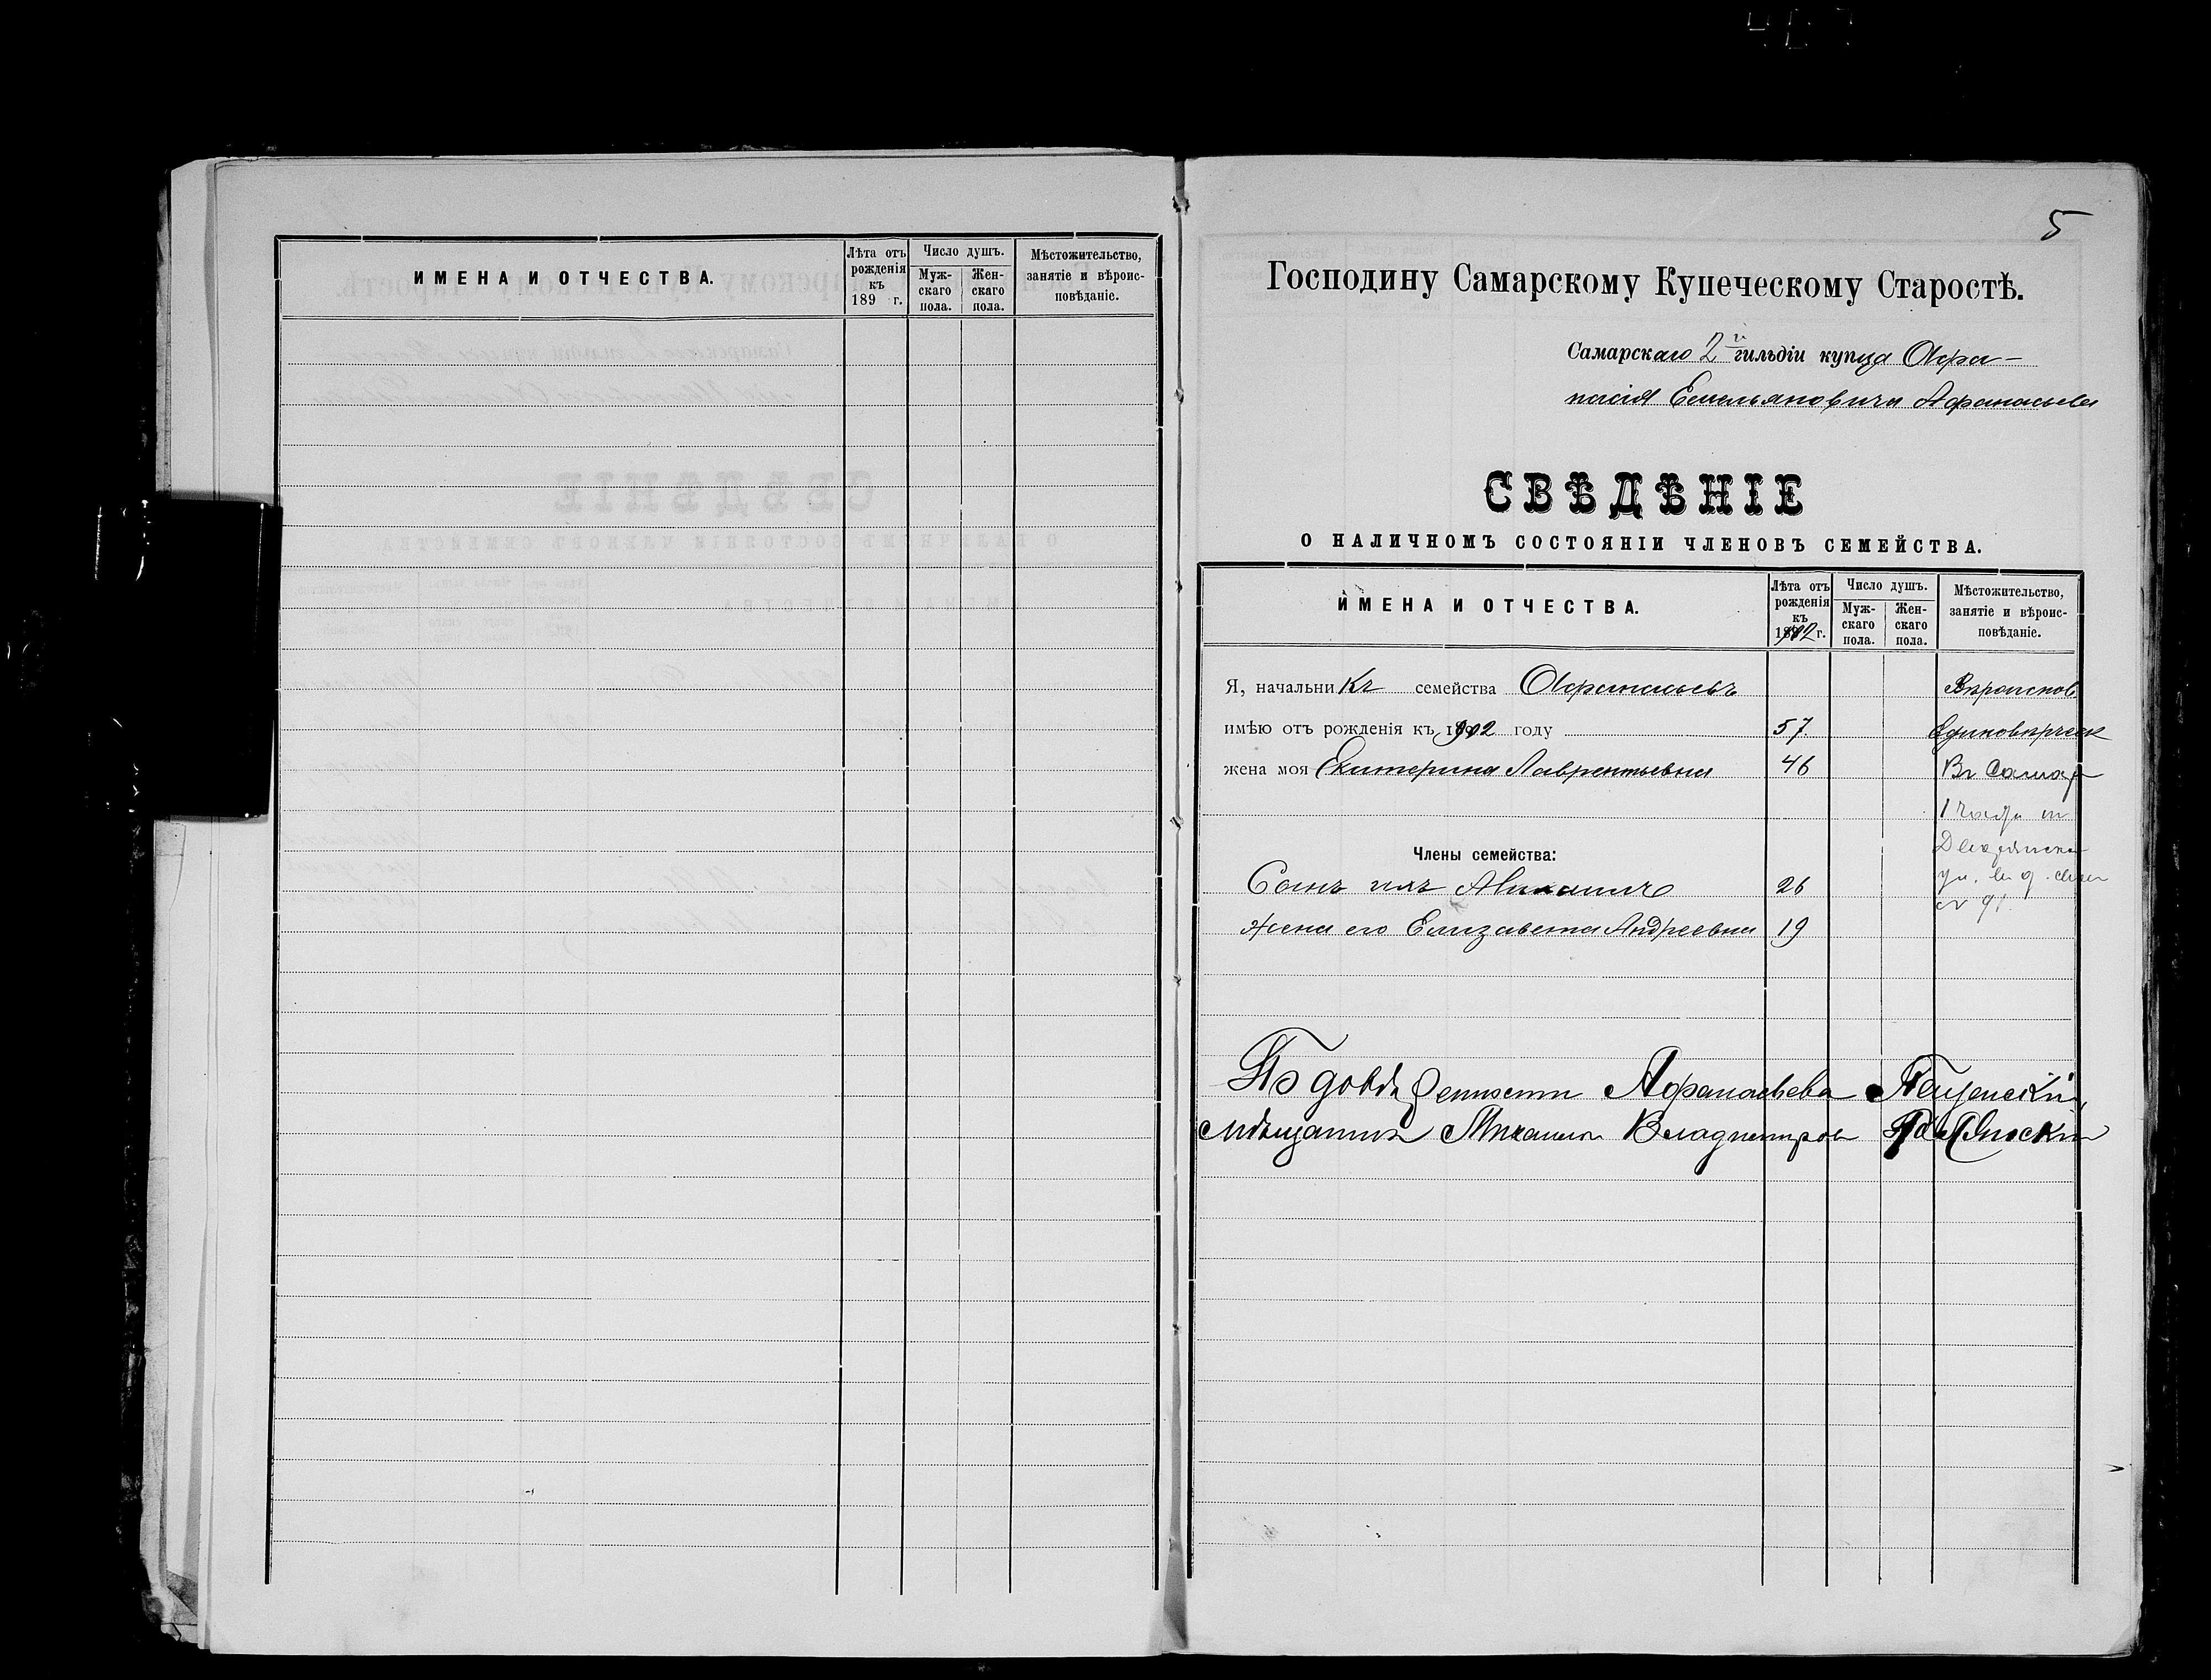 ИМЕНА И ОТЧЕСТВА.
Лѣта отъ рожденія къ 189 г.
Число душъ.
Муж-скаго пола.
Жен-скаго пола.
Мѣстожительство, занятіе и вѣроис-повѣданіе.
5
Господину Самарскому Купеческому Старостѣ.
Самарскаго 2й гильдіи купца Афа-
насія Емельяновича Афанасьева
СВѢДѢНІЕ
О НАЛИЧНОМЪ СОСТОЯНІИ ЧЛЕНОВЪ СЕМЕЙСТВА.
ИМЕНА И ОТЧЕСТВА.
Лѣта отъ рожденія къ 1902 г.
Число душъ.
Муж-скаго пола.
Жен-скаго пола.
Мѣстожительство, занятіе и вѣроис-повѣданіе.
Я, начальникъ семейства Афанасьевъ Вѣроисков
имѣю отъ рожденія къ 1902 году 57. Единовѣрческ
жена моя Екатерина Лаврентьевна 46 Въ Самар
1 части
Члены семейства:
Сынъ ихъ 26
ул. в д.
Жена его Елизавета Андреевна 19
По довѣренности Афанасьева
мѣщанинъ Михаилъ Владимиров